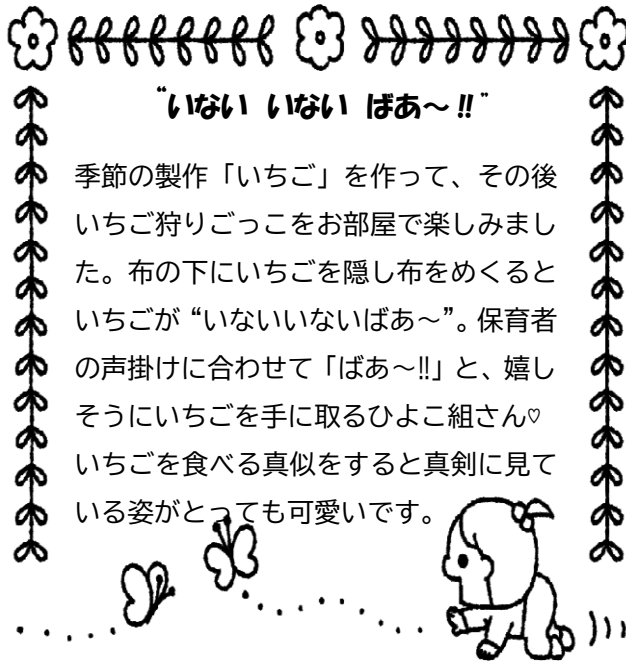 “いない いない ばあ～!!”
季節の製作「いちご」を作って、その後
いちご狩りごっこをお部屋で楽しみまし
た。布の下にいちごを隠し布をめくると
いちごが“いないいないばあ～”。保育者
の声掛けに合わせて「ばあ～!!」と、嬉し
そうにいちごを手に取るひよこ組さん♡
いちごを食べる真似をすると真剣に見て
いる姿がとっても可愛いです。